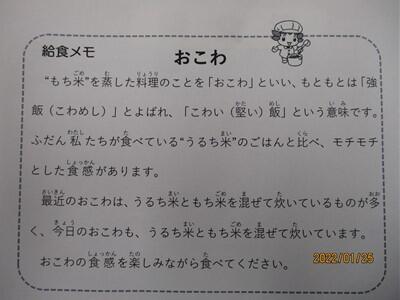 給食メモ
おこわ
“もち米”を蒸した料理のことを「おこわ」といい、もともとは「強
飯（こわめし）」とよばれ、「こわい（堅い）飯」という意味です。
ふだん私たちが食べている“うるち米”のごはんと比べ、モチモチ
とした食感があります。
最近のおこわは、うるち米ともち米を混ぜて炊いているものが多
く、今日のおこわも、うるち米ともち米を混ぜて炊いています。
おこわの食感を楽しみながら食べてください。
2022/01/25